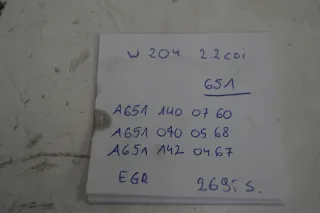 W 204 2.2 CDI
651
A651 140 07 60
A651 090 05 68
A651 142 04 67
EGR 269,- S.